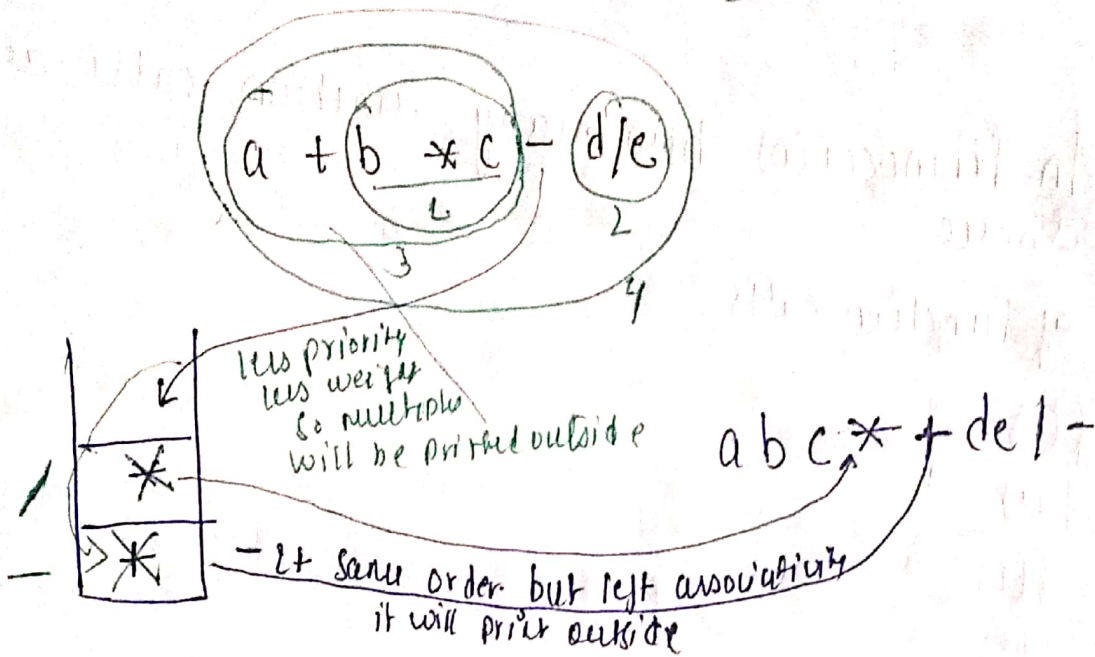 a + b * c - d/e
1
2
3
4
less priority
less weight
so multiple
will be printed outside
a b c * + d e / -
/
*
-
- & + same order but left associativity
it will print outside